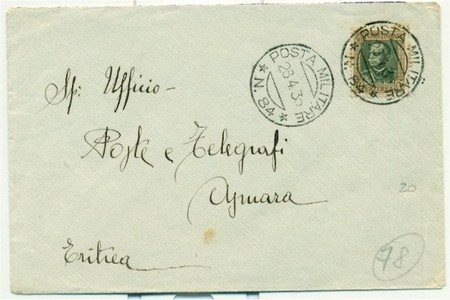 POSTA MILITARE
N. 84
28.4.3
POSTA MILITARE
N. 84
Sp: Ufficio -
Poste e Telegrafi
Asmara
Eritrea
20
78